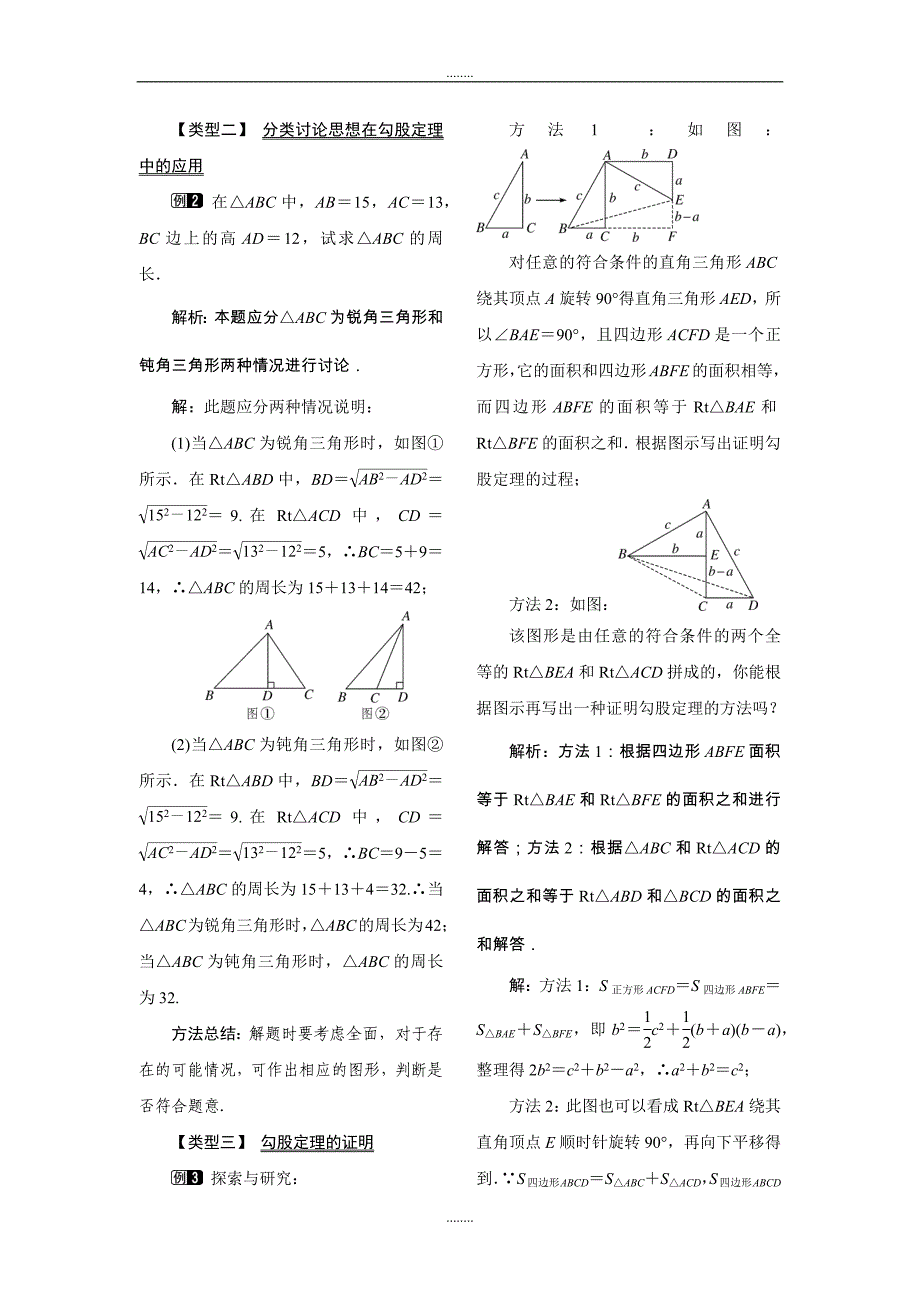 ........
【类型二】 分类讨论思想在勾股定理
中的应用
例2 在△ABC中，AB＝15，AC＝13，
BC边上的高AD＝12，试求△ABC的周
长．
解析：本题应分△ABC为锐角三角形和
钝角三角形两种情况进行讨论．
解：此题应分两种情况说明：
(1)当△ABC为锐角三角形时，如图①
所示．在Rt△ABD中，BD＝√(AB²－AD²)＝
√(15²－12²)＝9.在 Rt△ACD 中，CD＝
√(AC²－AD²)＝√(13²－12²)＝5，∴BC＝5＋9＝
14，∴△ABC的周长为15＋13＋14＝42；
A
A
B
D
C
B
C
D
图①
图②
(2)当△ABC为钝角三角形时，如图②
所示．在Rt△ABD中，BD＝√(AB²－AD²)＝
√(15²－12²)＝9.在 Rt△ACD 中，CD＝
√(AC²－AD²)＝√(13²－12²)＝5，∴BC＝9－5＝
4，∴△ABC的周长为15＋13＋4＝32.∴当
△ABC为锐角三角形时，△ABC的周长为42；
当△ABC为钝角三角形时，△ABC的周长
为32.
方法总结：解题时要考虑全面，对于存
在的可能情况，可作出相应的图形，判断是
否符合题意.
【类型三】 勾股定理的证明
例3 探索与研究：
方法1：如图：
A
c
b
B
a
C
A
b
D
a
c
c
b
E
b－a
B
a
C
b
F
对任意的符合条件的直角三角形ABC
绕其顶点A旋转90°得直角三角形AED，所
以∠BAE＝90°，且四边形ACFD是一个正
方形，它的面积和四边形ABFE的面积相等，
而四边形ABFE的面积等于Rt△BAE和
Rt△BFE的面积之和．根据图示写出证明勾
股定理的过程；
A
c
a
B
b
E
c
b－a
C
a
D
方法2：如图：
该图形是由任意的符合条件的两个全
等的Rt△BEA和Rt△ACD拼成的，你能根
据图示再写出一种证明勾股定理的方法吗？
解析：方法1：根据四边形ABFE面积
等于Rt△BAE和Rt△BFE的面积之和进行
解答；方法2：根据△ABC和Rt△ACD的
面积之和等于Rt△ABD和△BCD的面积之
和解答．
解：方法1：S正方形ACFD＝S四边形ABFE＝
S△BAE＋S△BFE，即b²＝1/2c²＋1/2(b＋a)(b－a)，
整理得2b²＝c²＋b²－a²，∴a²＋b²＝c²；
方法2：此图也可以看成Rt△BEA绕其
直角顶点E顺时针旋转90°，再向下平移得
到．∵S四边形ABCD＝S△ABC＋S△ACD，S四边形ABCD
........